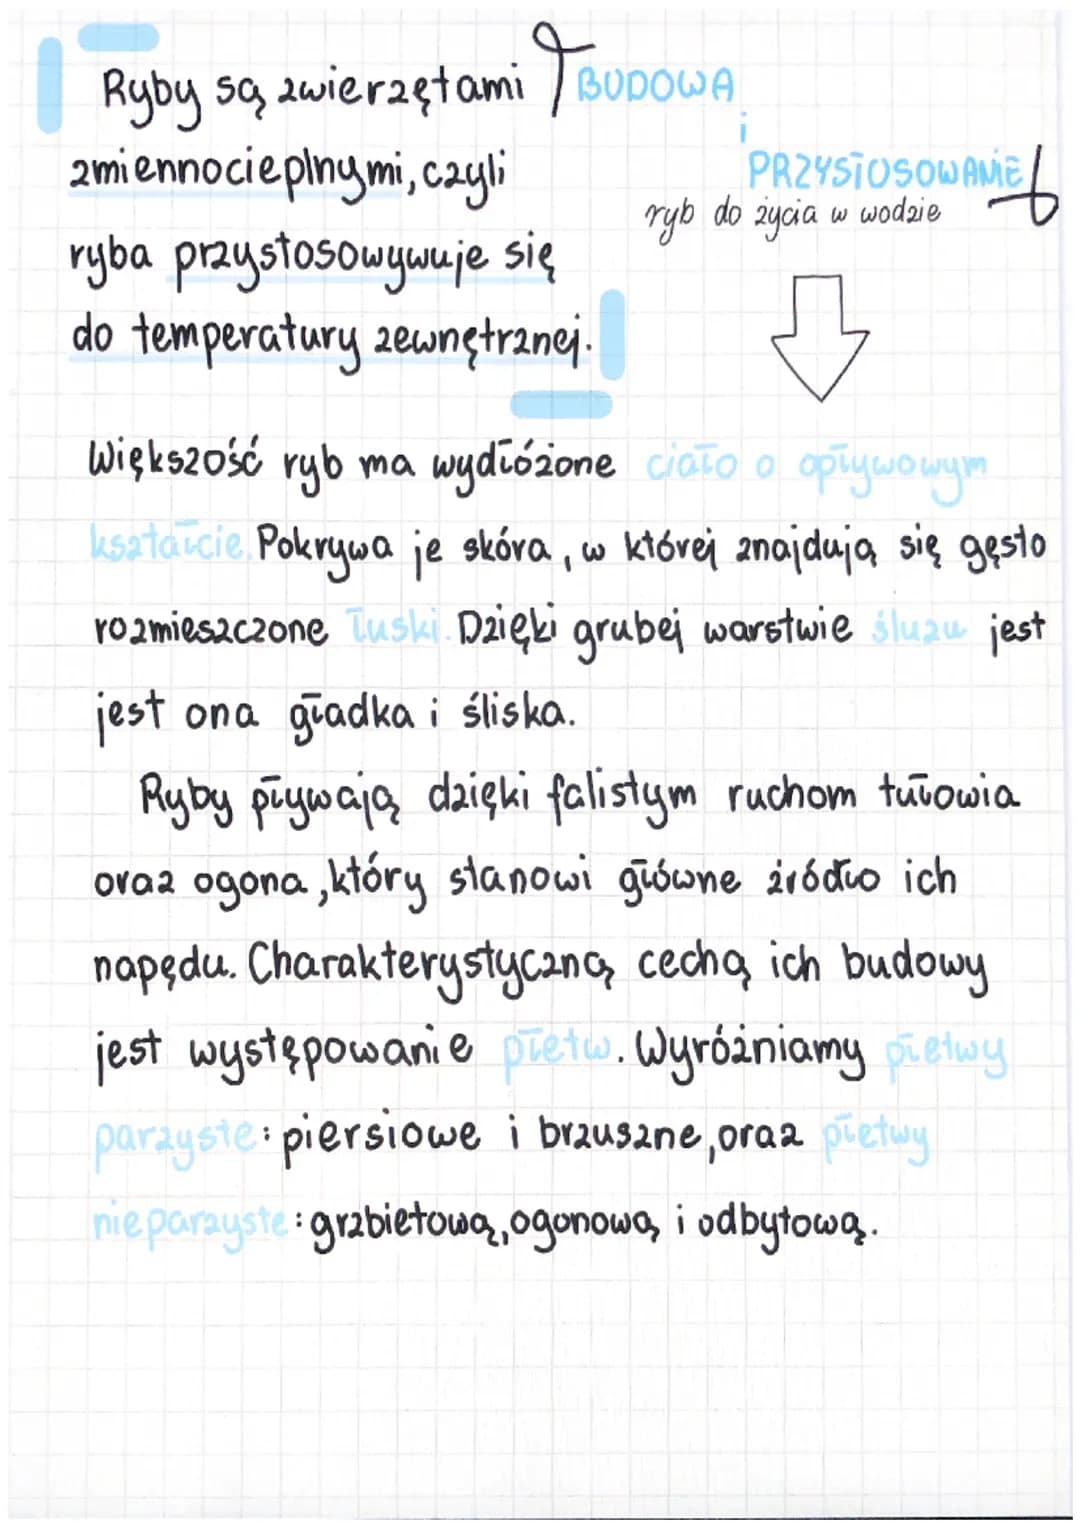 Ryby są zwierzętami
zmiennocieplnymi, czyli
ryba przystosowywuje się
do temperatury zewnętrznej.
BUDOWA
i
PRZYSTOSOWANIE
ryb do życia w wodzie
Większość ryb ma wydłóżone ciało o opływowym
kształcie. Pokrywa je skóra, w której znajdują się gęsto
rozmieszczone łuski. Dzięki grubej warstwie śluzu jest
jest ona gładka i śliska.
Ryby pływają dzięki falistym ruchom tułowia
oraz ogona, który stanowi główne źródło ich
napędu. Charakterystyczną cechą ich budowy
jest występowanie płetw. Wyróżniamy płetwy
parzyste: piersiowe i brzuszne, oraz płetwy
nieparzyste: grzbietową, ogonową i odbytową.